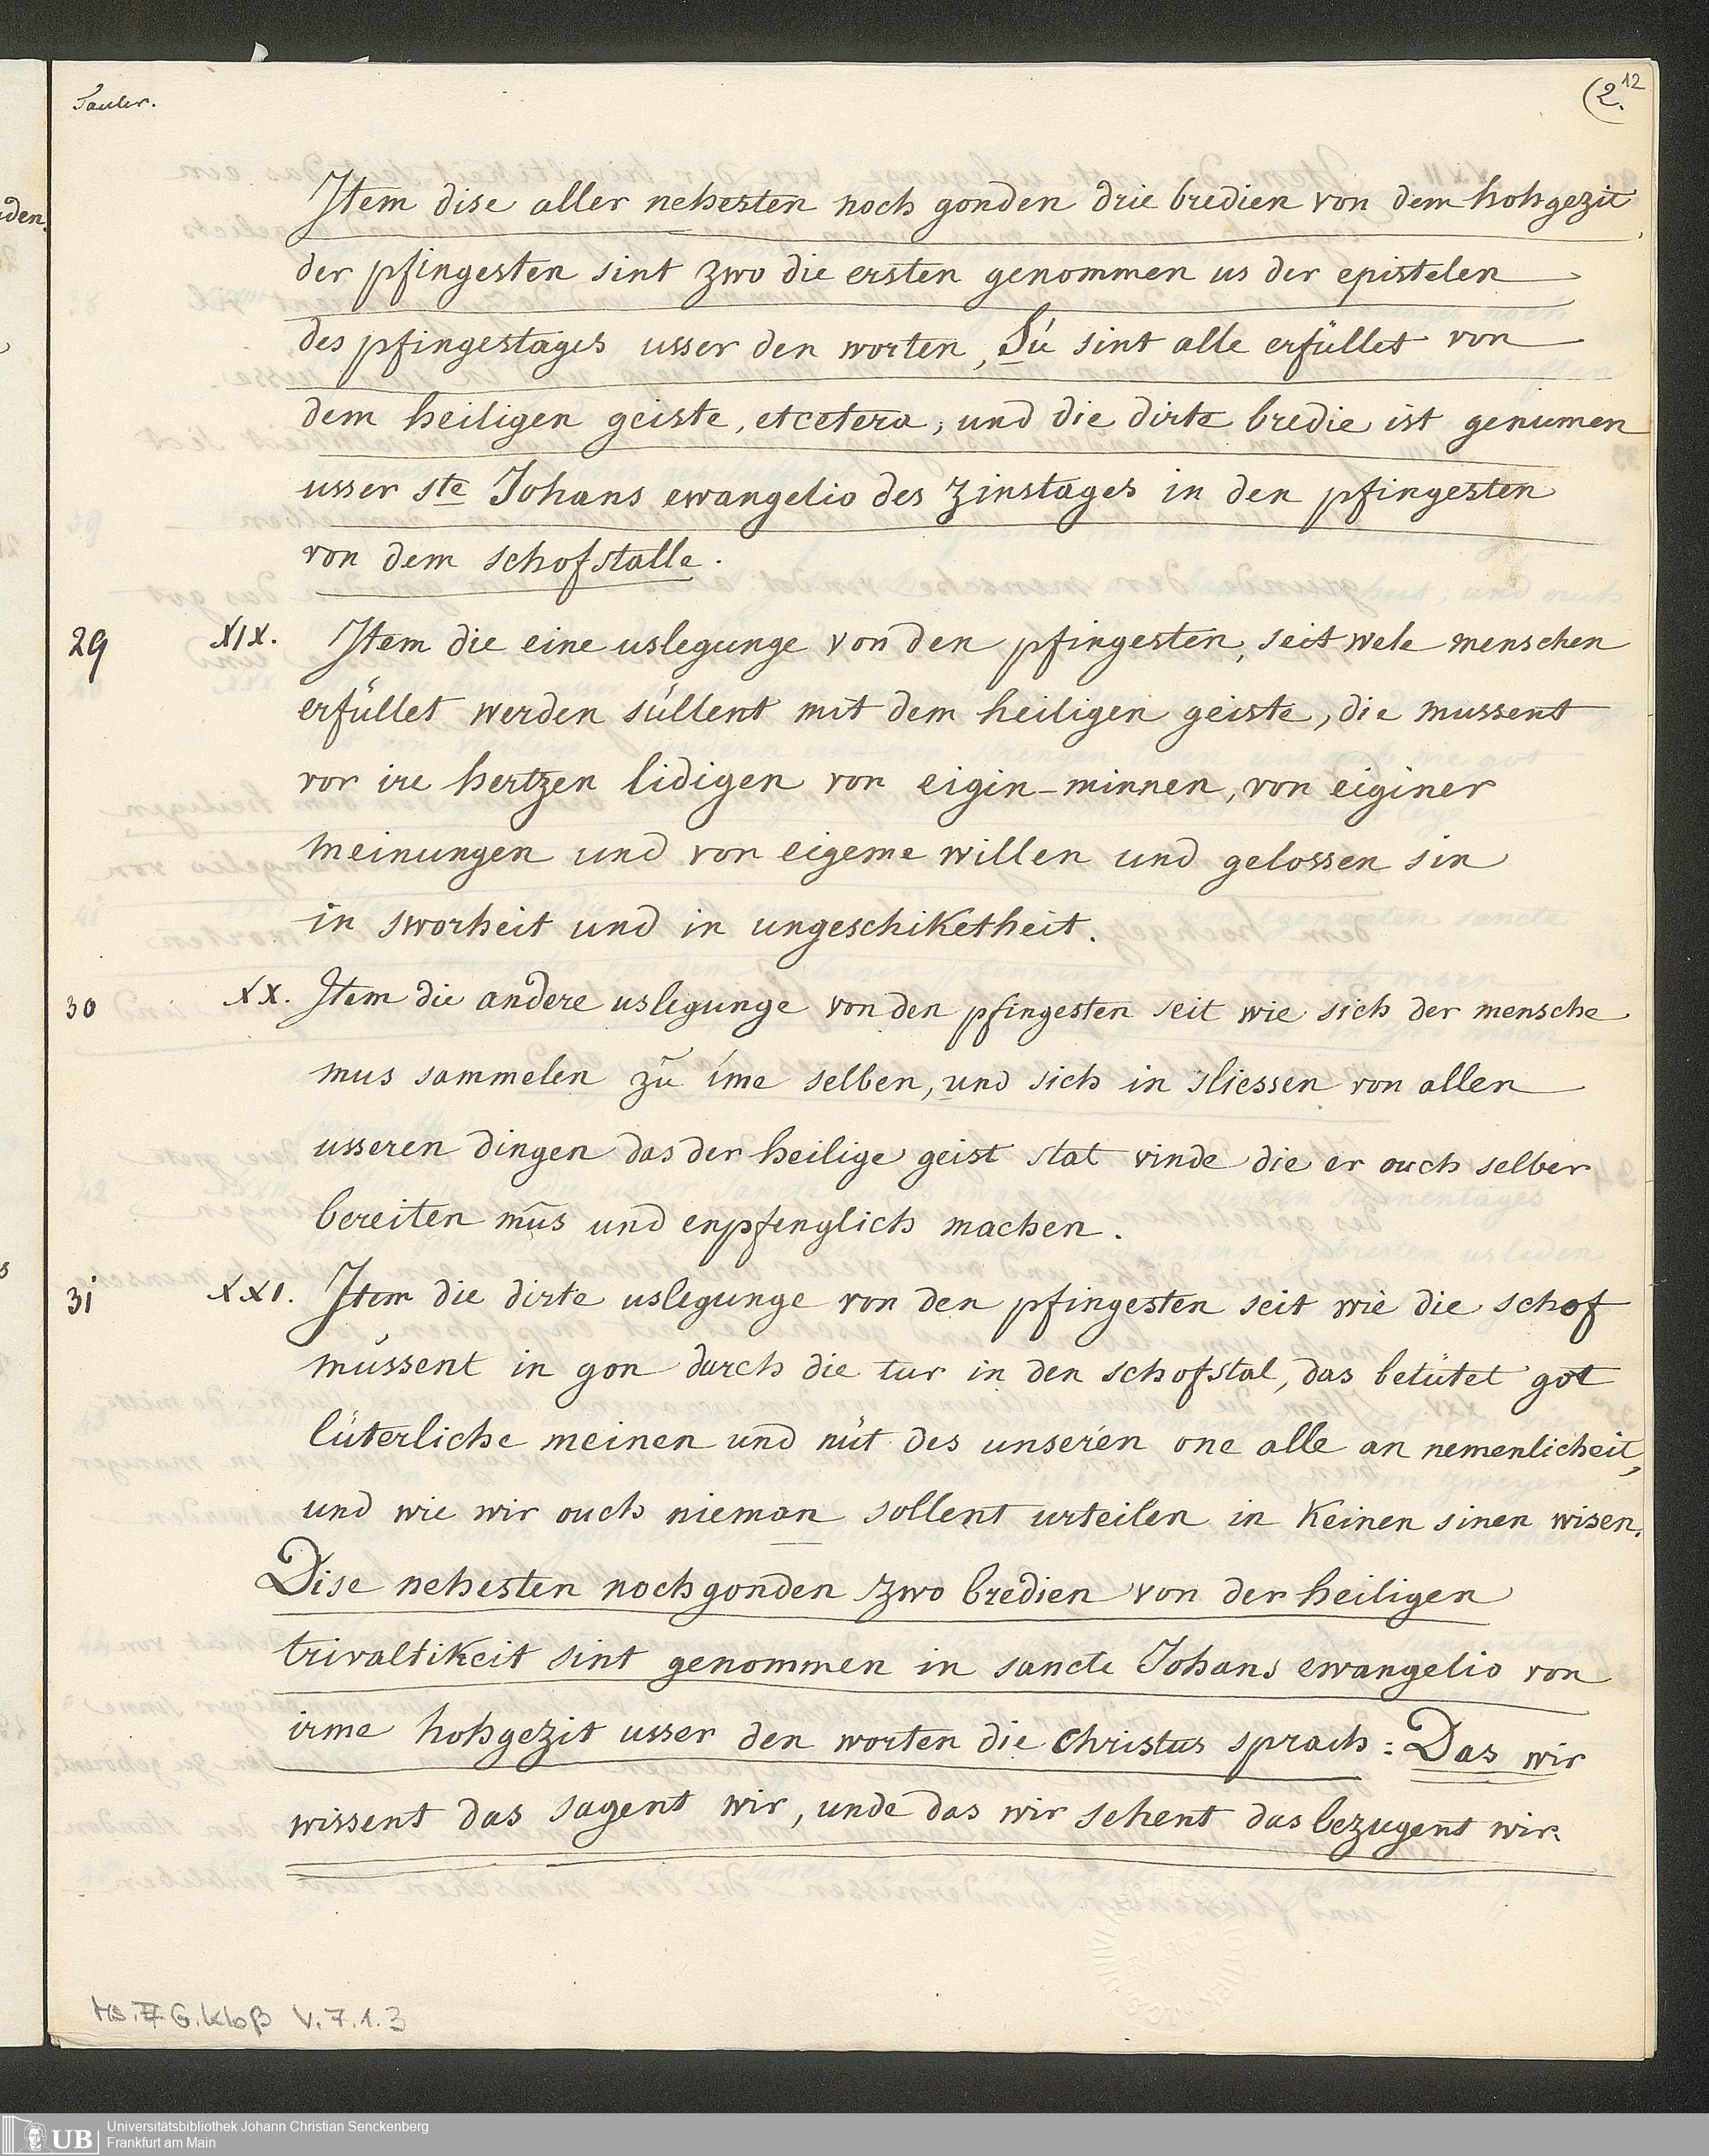 Tauler.
(2.
12
Item dise aller nehesten noch gonden drie bredien von dem hohgezit
der pfingesten sint zwo die ersten genommen us der epistelen
des pfingestages usser den worten, Sú sint alle erfúllet von
dem heiligen geiste, etcetera, und die dirte bredie ist genumen
usser ste Johans ewangelio des zinstages in den pfingesten
von dem schofstalle.
29 XIX. Item die eine uslegunge von den pfingesten, seit wele menschen
erfúllet werden súllent mit dem heiligen geiste, die mussent
vor ire hertzen lidigen von eigin-minnen, von eiginer
meinungen und von eigeme willen und gelossen sin
in sworheit und in ungeschiketheit.
30 XX. Item die andere uslegunge von den pfingesten seit wie sich der mensche
mus sammelen zů íme selben, und sich in sliessen von allen
usseren dingen das der heilige geist stat vinde die er ouch selber
bereiten můs und enpfenglich machen.
31 XXI. Item die dirte uslegunge von den pfingesten seit wie die schof
mússent in gon durch die tur in den schofstal, das betútet got
lúterliche meinen und nút des unseren one alle an nemenlicheit,
und wie wir ouch nieman sollent urteilen in keinen sinen wisen.
Dise nehesten nochgonden zwo bredien von der heiligen
trivaltikeit sint genommen in sancte Johans ewangelio von
irme hohgezit usser den worten die Christus sprach: Das wir
wissent das sagent wir, unde das wir sehent das bezugent wir.
Ms. F. G. Kloß V.7.1.3
UB
Universitätsbibliothek Johann Christian Senckenberg
Frankfurt am Main